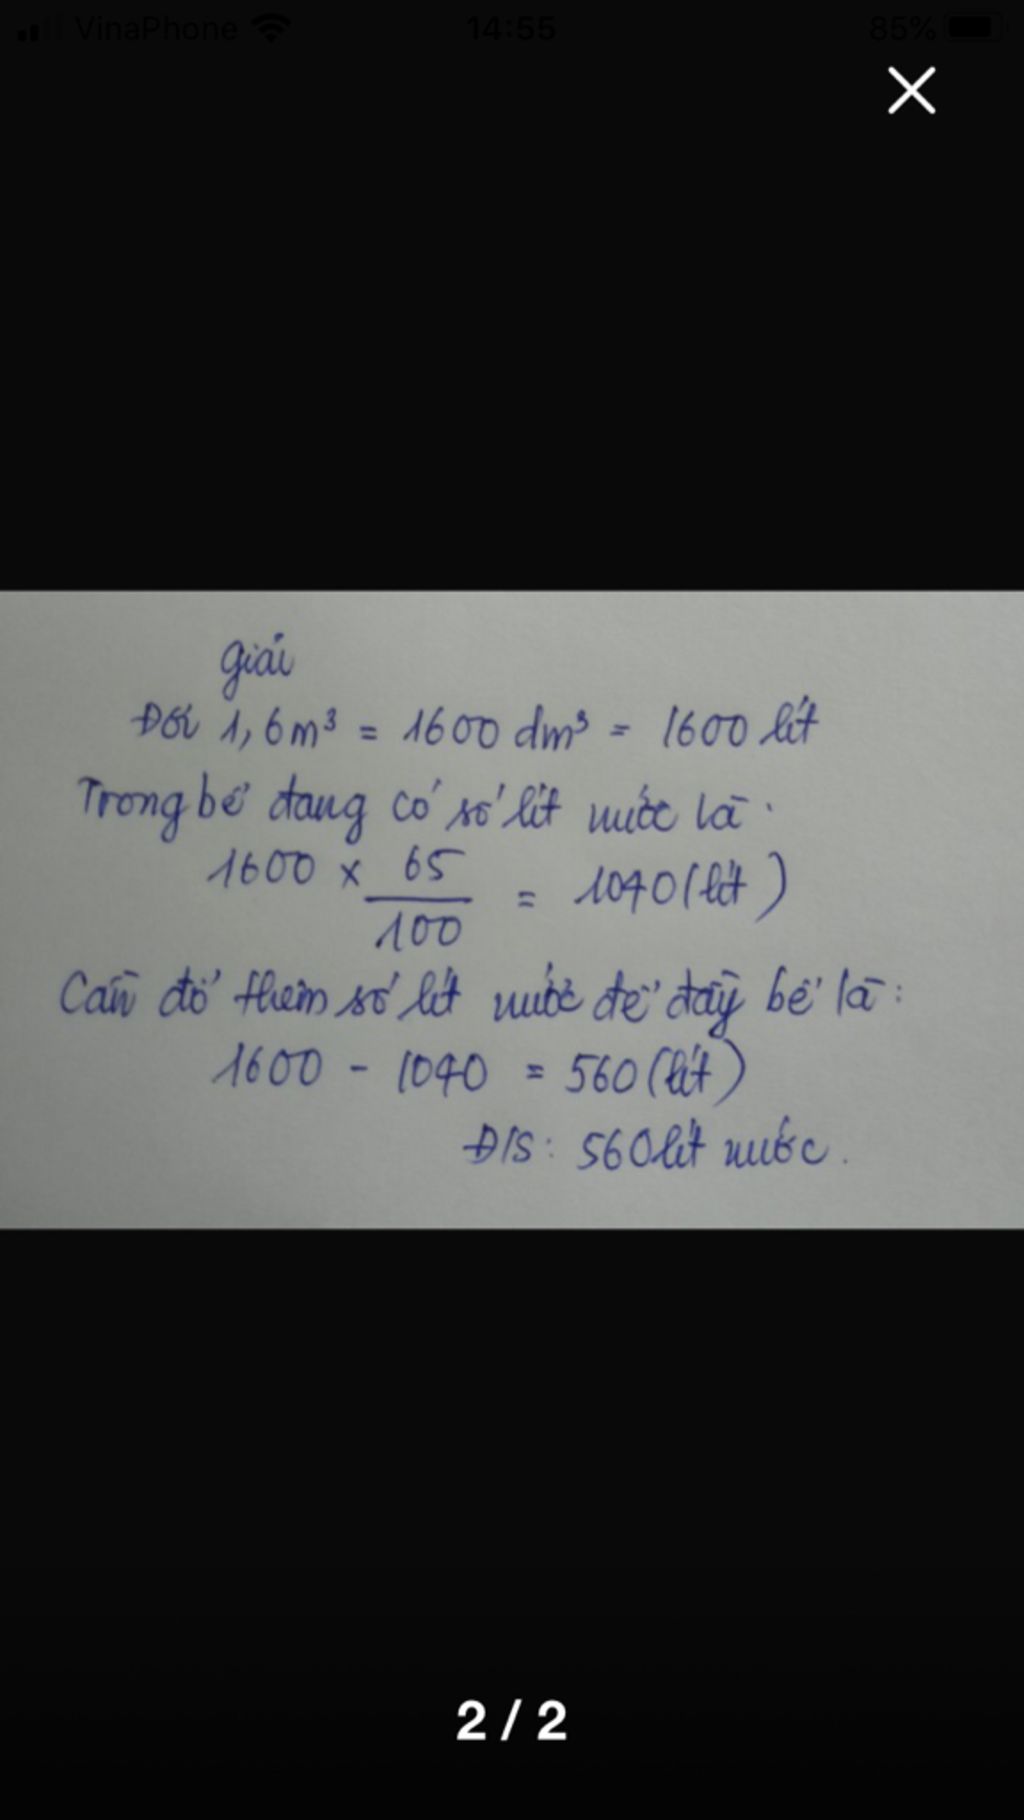 VinaPhone 14:55 85%
giải
Đổi 1,6m³ = 1600 dm³ = 1600 lít
Trong bể đang có số lít nước là:
1600 × 65/100 = 1040 (lít)
Cần đổ thêm số lít nước để đầy bể là:
1600 - 1040 = 560 (lít)
Đ/S: 560 lít nước.
2 / 2